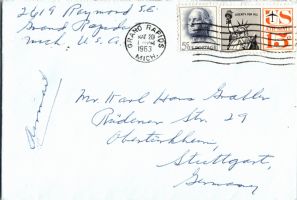 2619 Raymond S.E.
Grand Rapids
Mich. U.S.A.
GRAND RAPIDS
MICH.
MAY 28
1963
5¢ U.S. POSTAGE
LIBERTY FOR ALL
US
15¢
Mr. Karl Hans
Str. 29
Stuttgart,
Germany